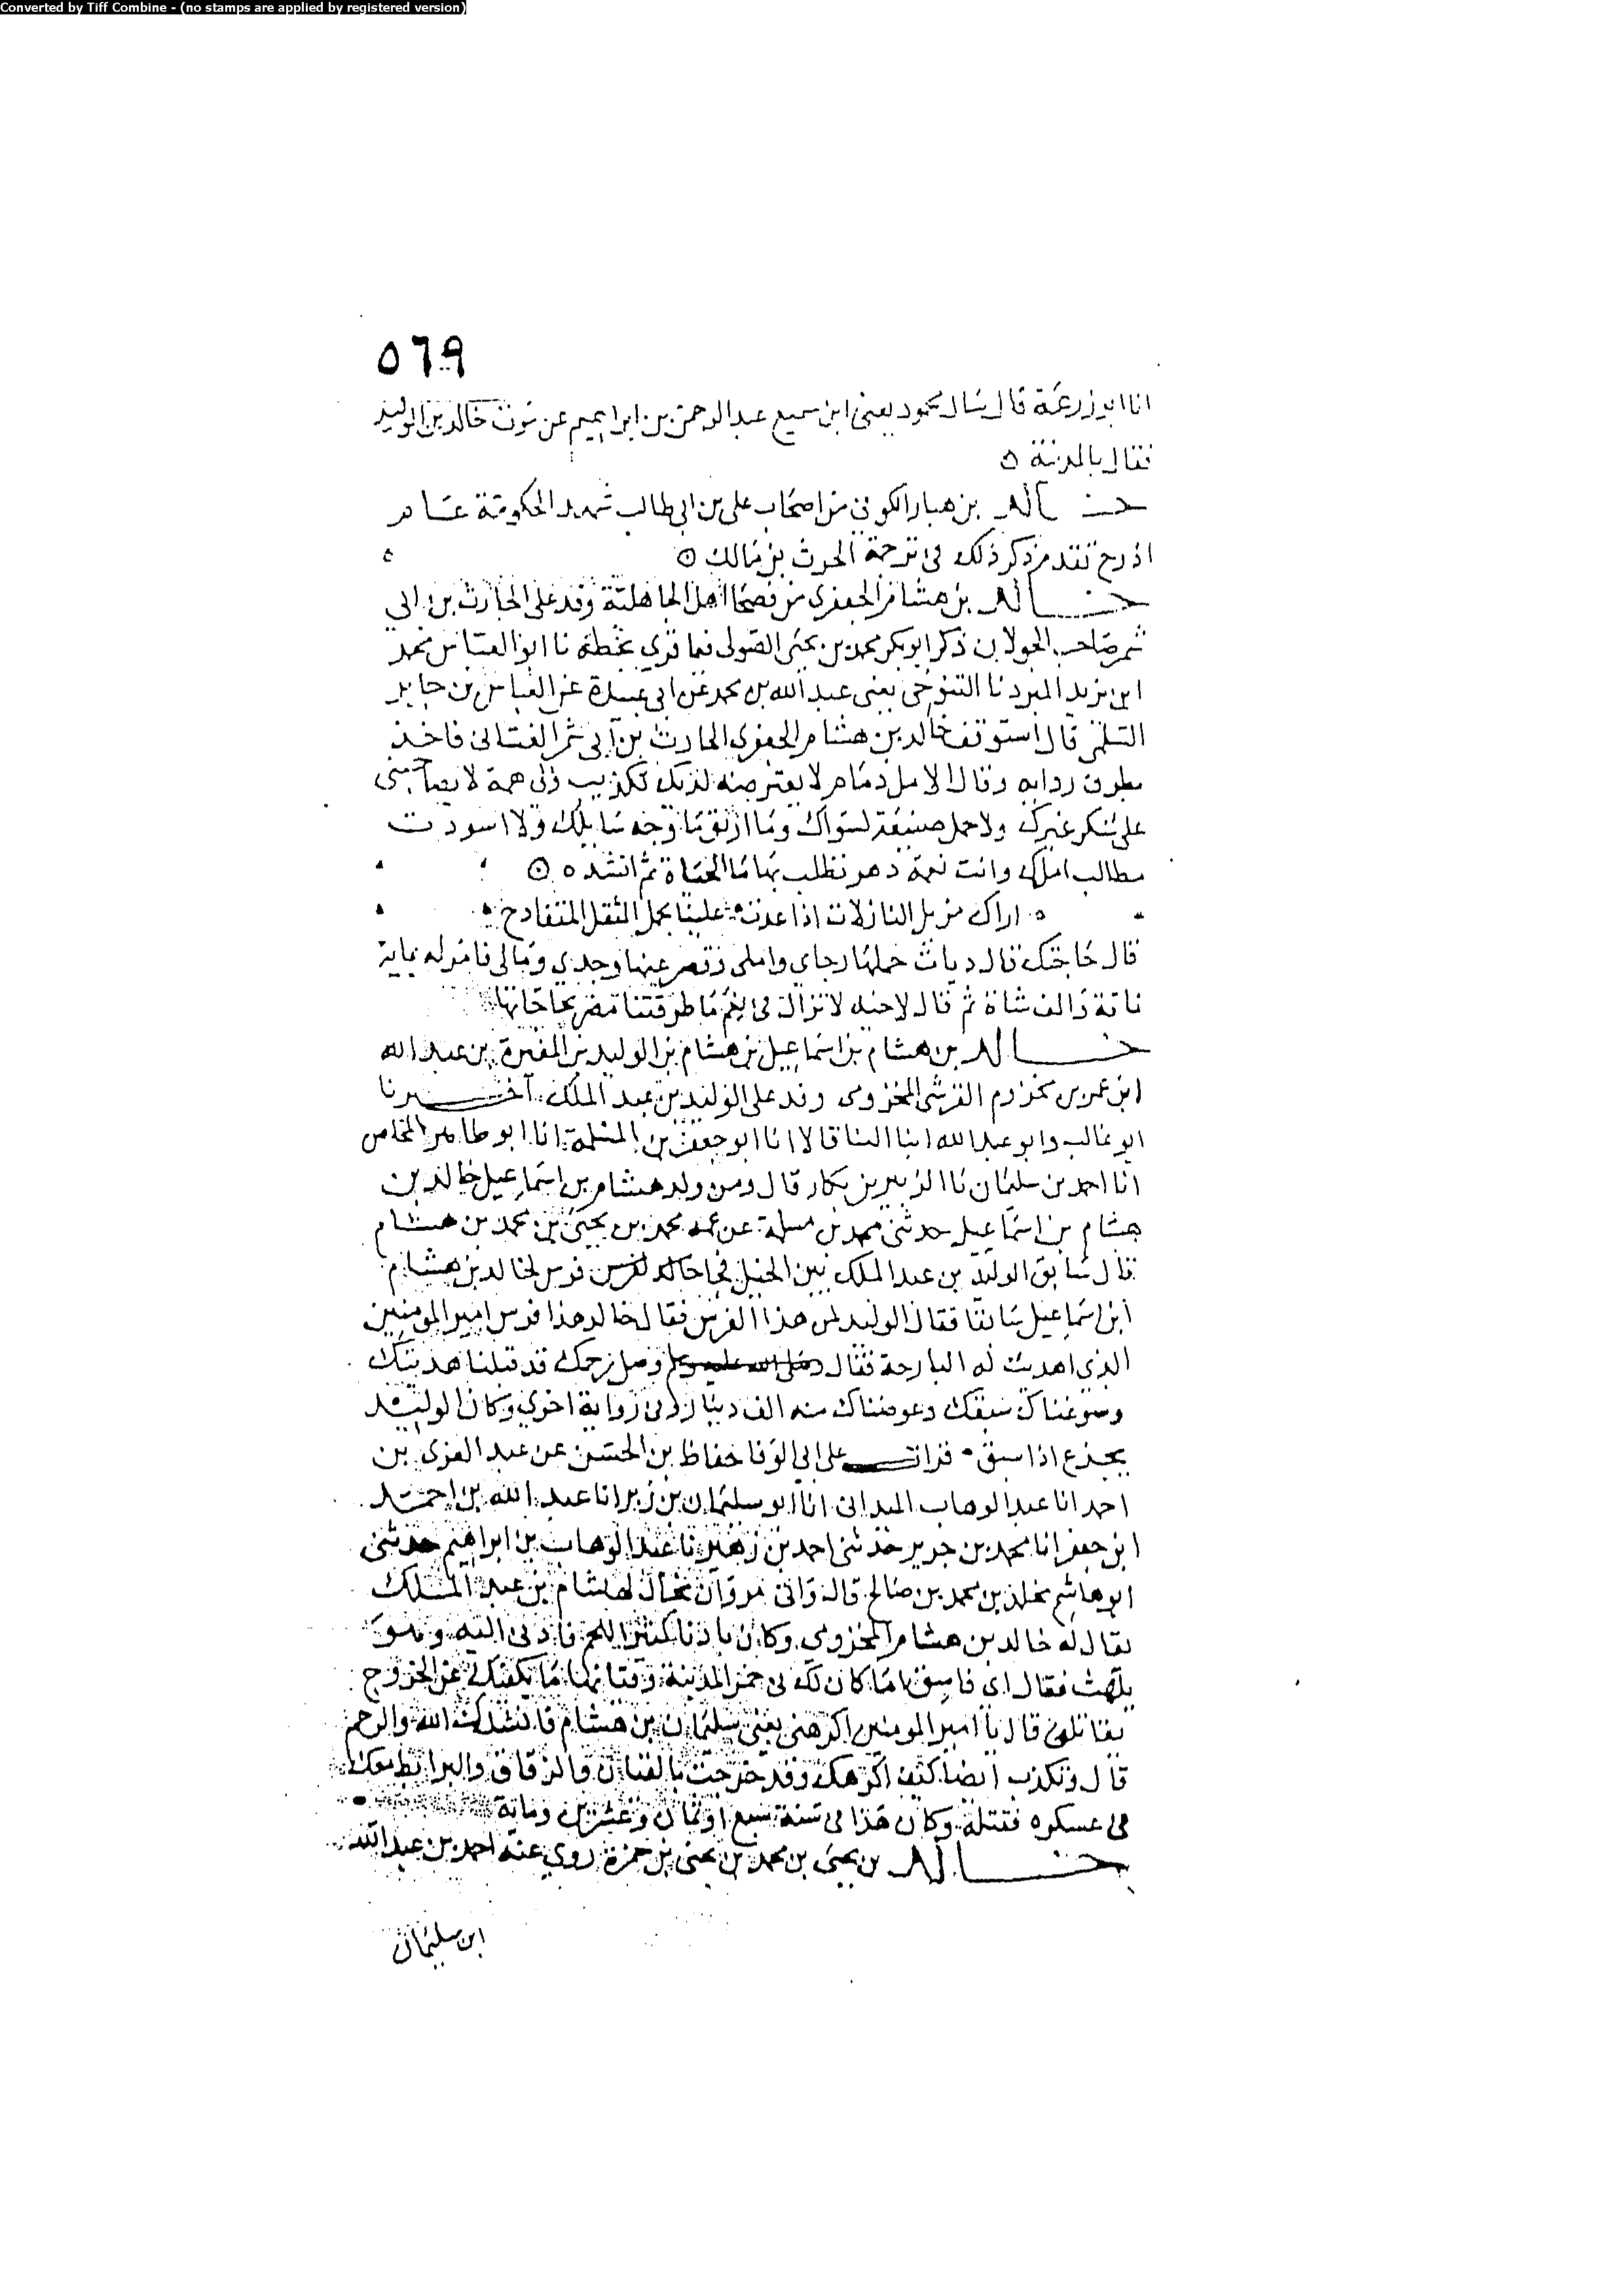 Converted by Tiff Combine - (no stamps are applied by registered version)
٥٦٩
انا ابو زرعة قال سال محمود يعني ابن سميع عبد الرحمن بن ابراهيم عن موت خالد بن الوليد
فقال بالمدينة ه
خالد بن هبار الكوفي من اصحاب علي بن ابي طالب شهد الحكومة عام
اذرح تقدم ذكر ذلك في ترجمة الحرث بن مالك ه
خالد بن هشام الجعفري من فصحا اهل الجاهلية وفد على الحارث بن ابي
شمر صاحب الجولان ذكر ابو بكر محمد بن يحيى الصولي فيما قري بخطه نا ابو العباس محمد
ابن يزيد المبرد نا التنوخي يعني عبد الله بن محمد عن ابي عبيدة عن العباس بن جابر
السلمي قال استوقف خالد بن هشام الجعفري الحارث بن ابي شمر الغساني فاخذ
بطرف ردايه وقال الامل ذمام لا يعترضه لديك تكذيب ولي همة لا تصاحبني
على شكر غيرك ولا حمل صنيعة لسواك وما ازلق ما وجه سايلك ولا اسودت
مطالب املك وانت نعمة دهر نطلب بها ما الحياة ثم انشد ه
اراك مزيل النازلات اذا عدت علينا بحمل الثقل المتفادح
قال حاجتك قال ديات حملها رجاي واملي وقصر عنها وجدي ومالي فامر له بماية
ناقة والف شاة ثم قال لاخيه لا نزال في نعم ما طرقتنا مضر بحاجاتها
خالد بن هشام بن اسماعيل بن هشام بن الوليد بن المغيرة بن عبد الله
ابن عمر بن مخزوم القرشي المخزومي وفد على الوليد بن عبد الملك اخبرنا
ابو غالب وابو عبد الله ابنا البنا قالا انا ابو جعفر بن المسلمة انا ابو طاهر المخلص
انا احمد بن سليمان نا الزبير بن بكار قال ومن ولد هشام بن اسماعيل خالد بن
هشام بن اسماعيل حدثني محمد بن مسلمة عن عمه محمد بن يحيى بن محمد بن هشام
قال سابق الوليد بن عبد الملك بين الخيل فجا فرس لخالد بن هشام
ابن اسماعيل سابقا فقال الوليد لمن هذا الفرس فقال خالد هذا فرس امير المومنين
الذي اهديت له البارحة فقال وصل رحمك قد قبلنا هديتك
وسوغناك سبقك وعوضناك منه الف دينار وفي رواية اخرى وكان الوليد
يجزع اذا سبق قرات على ابي الوفا حفاظ بن الحسن عن عبد العزيز بن
احمد انا عبد الوهاب الميداني انا ابو سليمان بن زبر انا عبد الله بن احمد
ابن جعفر انا محمد بن جرير حدثني احمد بن زهير نا عبد الوهاب بن ابراهيم حدثني
ابو هاشم مخلد بن محمد بن صالح قال واتى مروان بخال لهشام بن عبد الملك
يقال له خالد بن هشام المخزومي وكان بادنا كثير اللحم فادني اليه وهو
يلهث فقال اي فاسق اما كان لك في خمر المدينة وقيانها ما يكفك عن الخروج
تقاتلني قال يا امير المومنين اكرهني يعني سليمان بن هشام فانشدك الله والرحم
قال وتكذب ايضا كيف اكرهك وقد خرجت بالقيان والزقاق والبرابط معك
في عسكره فقتله وكان هذا في سنة سبع او ثمان وعشرين وماية
خالد بن يحيى بن محمد بن يحيى بن حمزة روي عنه احمد بن عبد الله
ابن سليمان